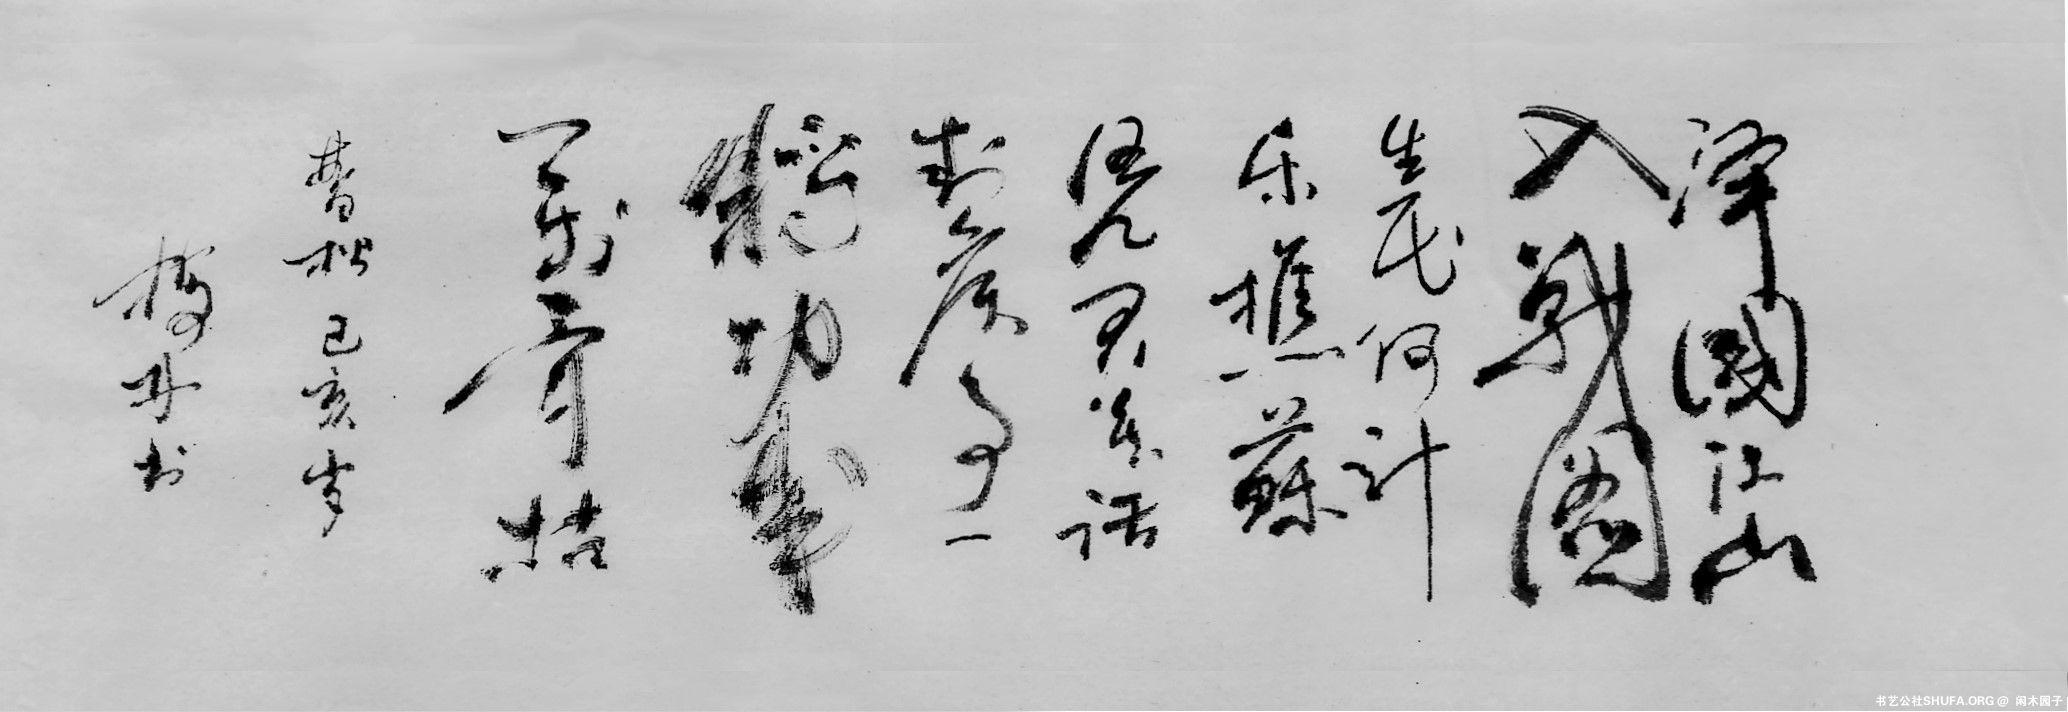 澤國江山
入戰圖
生民何計
乐樵蘇
凭君莫話
封侯事一
將功成
萬骨枯
曹松己亥岁
书
书艺公社SHUFA.ORG @ 闲木园子